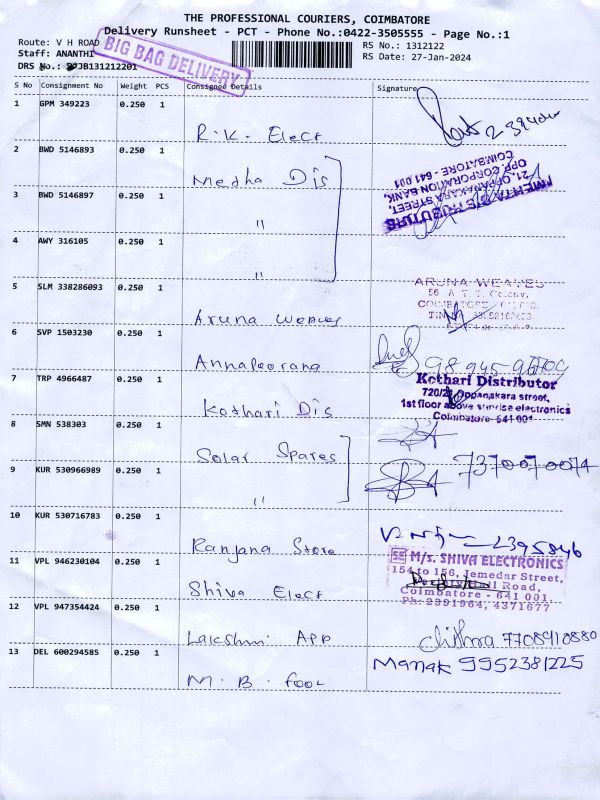 THE PROFESSIONAL COURIERS, COIMBATORE
Delivery Runsheet - PCT - Phone No.:0422-3505555 - Page No.:1
Route: V H ROAD
RS No.: 1312122
Staff: ANANTHI
RS Date: 27-Jan-2024
BIG BAG DELIVERY
DRS No.: JB131212201
S No Consignment No Weight PCS Consignee Details Signature
1 GPM 349223 0.250 1
R.K. Elect
2 BWD 5146893 0.250 1
Medha Dis
21, OPPANAKARA STREET,
OPP. CORPORATION BANK,
COIMBATORE - 641 001
3 BWD 5146897 0.250 1
"
4 AWY 316105 0.250 1
"
5 SLM 338286093 0.250 1
Aruna Weaves
ARUNA WEAVES
6 SVP 1503230 0.250 1
Annapoorana
7 TRP 4966487 0.250 1
Kothari Dis
Kothari Distributor
720/21 Oppanakara street,
1st floor above sunrise electronics
Coimbatore-641 001
8 SMN 538303 0.250 1
Solar Spares
9 KUR 530966989 0.250 1
"
7370070074
10 KUR 530716783 0.250 1
Ranjana Store
2395846
11 VPL 946230104 0.250 1
Shiva Elect
SE M/s. SHIVA ELECTRONICS
154 to 156, Jemedar Street,
Hall Road,
Coimbatore - 641 001.
Ph: 2391964, 4371677
12 VPL 947354424 0.250 1
Lakshmi App
Chithra 7708910880
13 DEL 600294585 0.250 1
M.B. Foot
Manak 9952381225